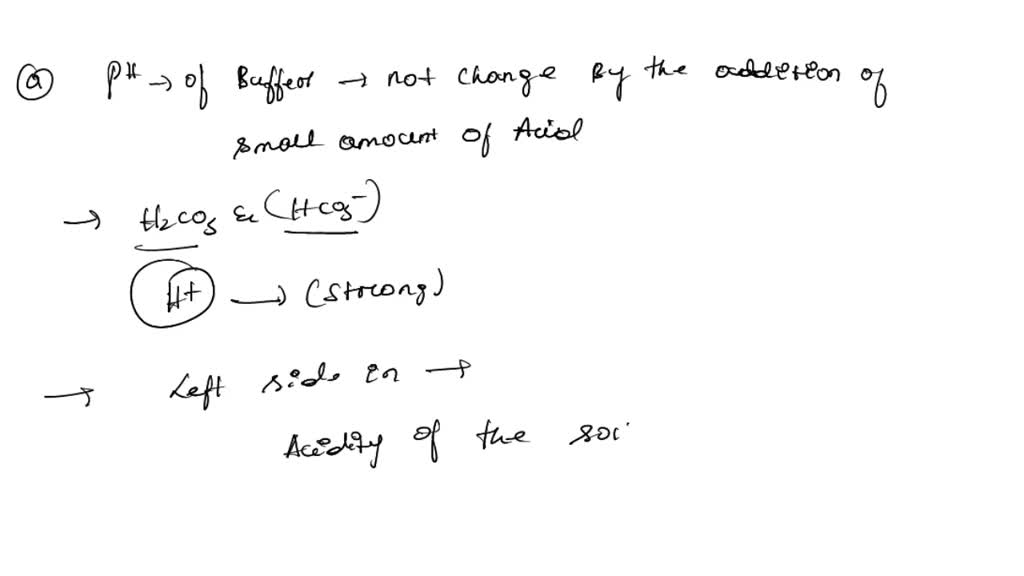 ⓐ pH → of Buffer → not change By the addition of
small amount of Acid
→ H2CO3 & (HCO3-)
H+ → (Strong)
→ Left side in →
Acidity of the soi